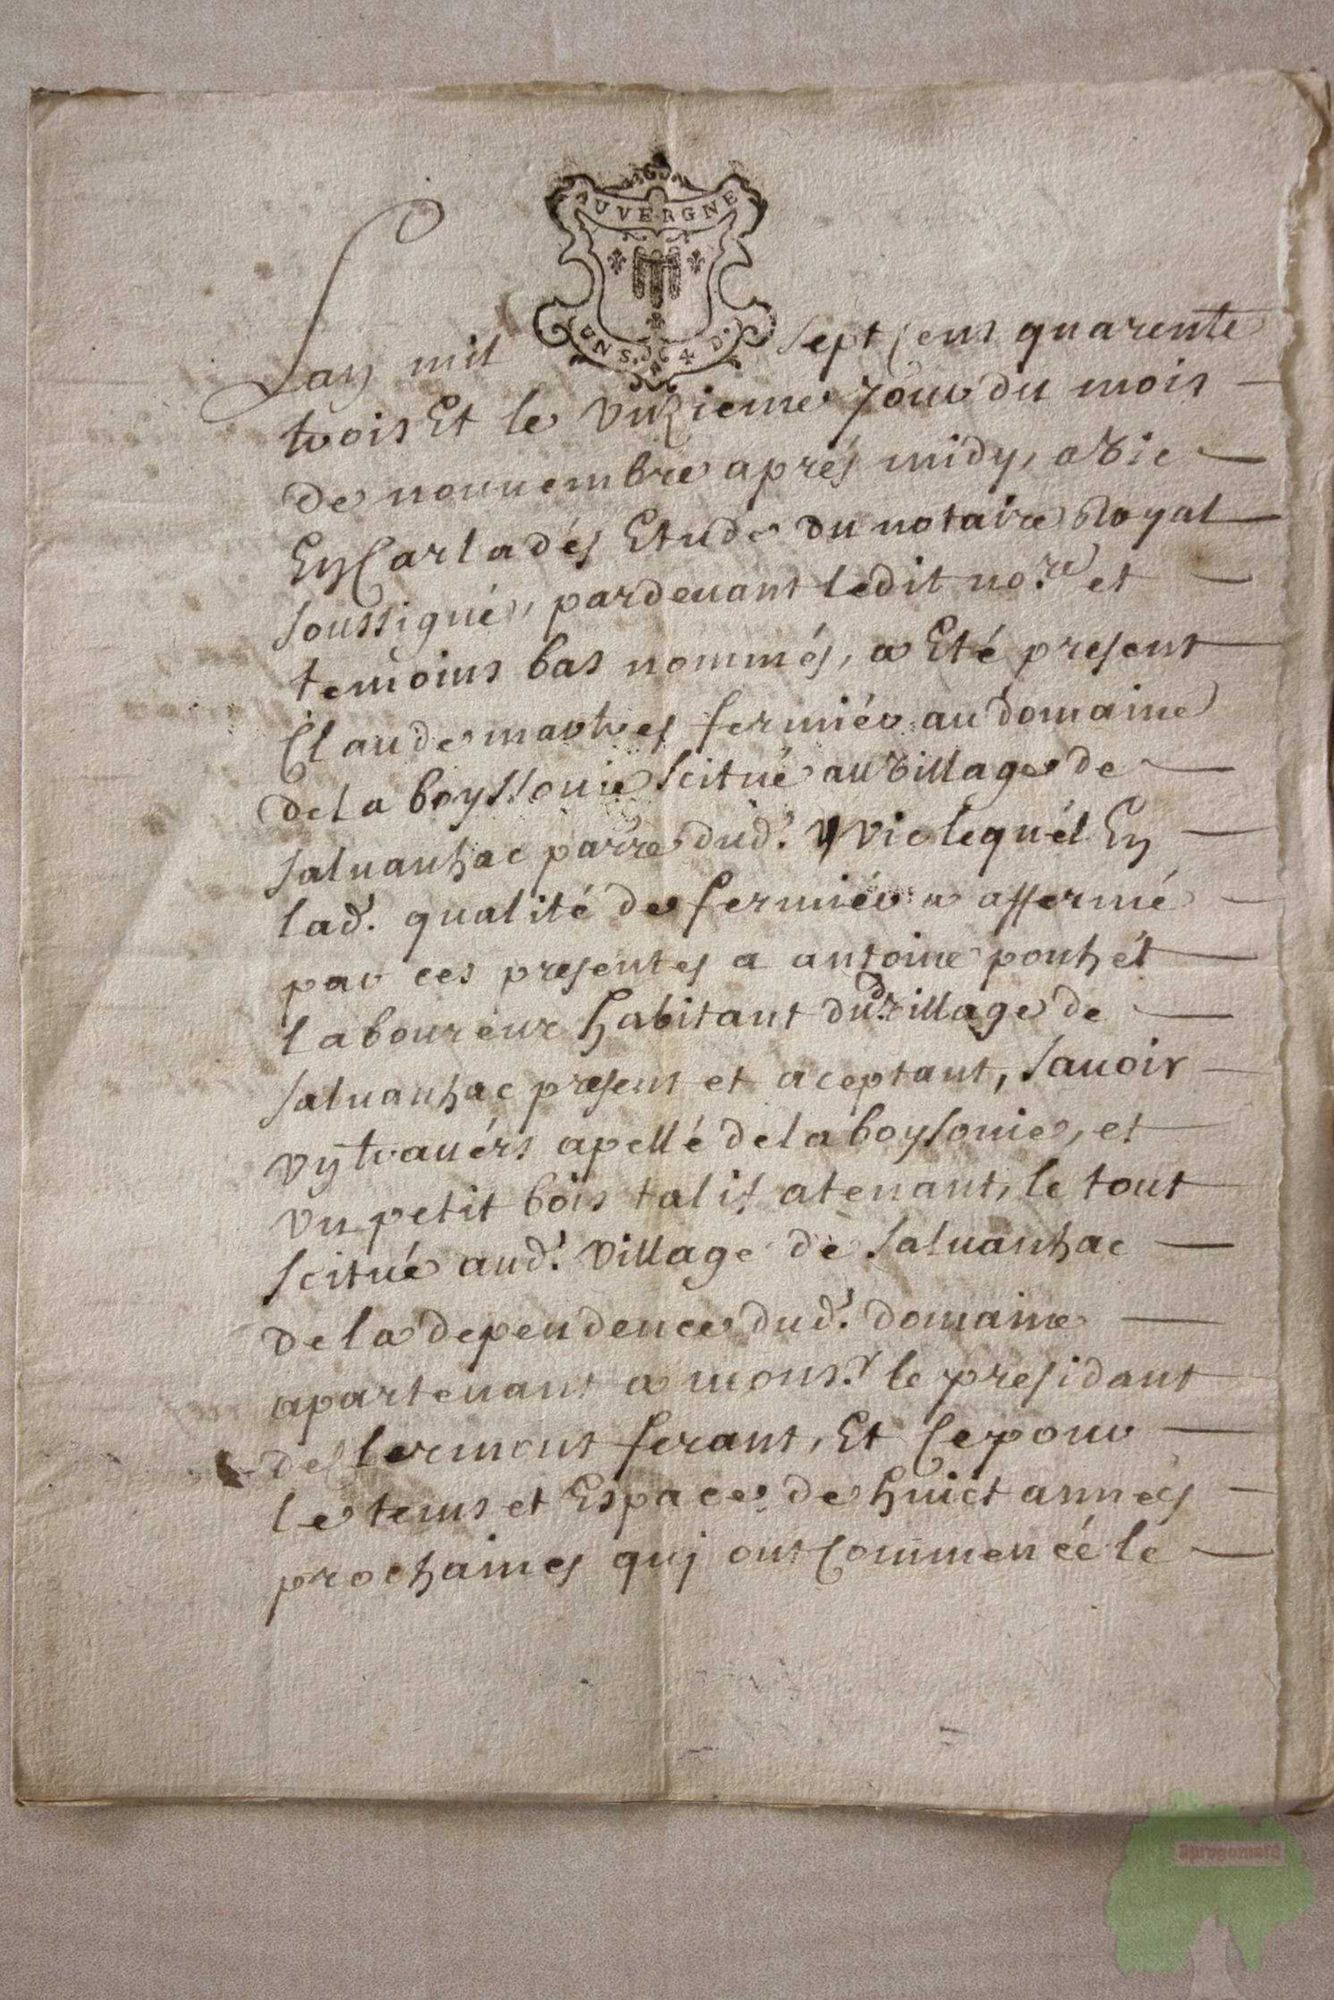 AUVERGNE
UN S. 4 D.
Lan mil sept cens quarente
trois Et le vnzieme Jour du mois
de nouuembre aprés midy, a Vic
En Carladés Etude du notaire Royal
soussigné, pardeuant ledit no.re et
temoins bas nommés, a Eté present
Claude martres fermiér au domaine
de la boyssonie scitué au Village de
saluanhac parre dud. Vic lequél En
lad. qualité de fermiér a affermé
par ces presentes a antoine ponhét
laboureur habitant dud. Village de
saluanhac present et aceptant, sauoir
vn trauérs apellé de la boysonie, et
vn petit bois talis atenant, le tout
scitué aud. Village de saluanhac
de la dependence dud. domaine
apartenant a mons.r le presidant
de Clermont ferant, Et Ce pour
le tems et Espace de huict années
prochaines quj ont Commencée le
aprogemere